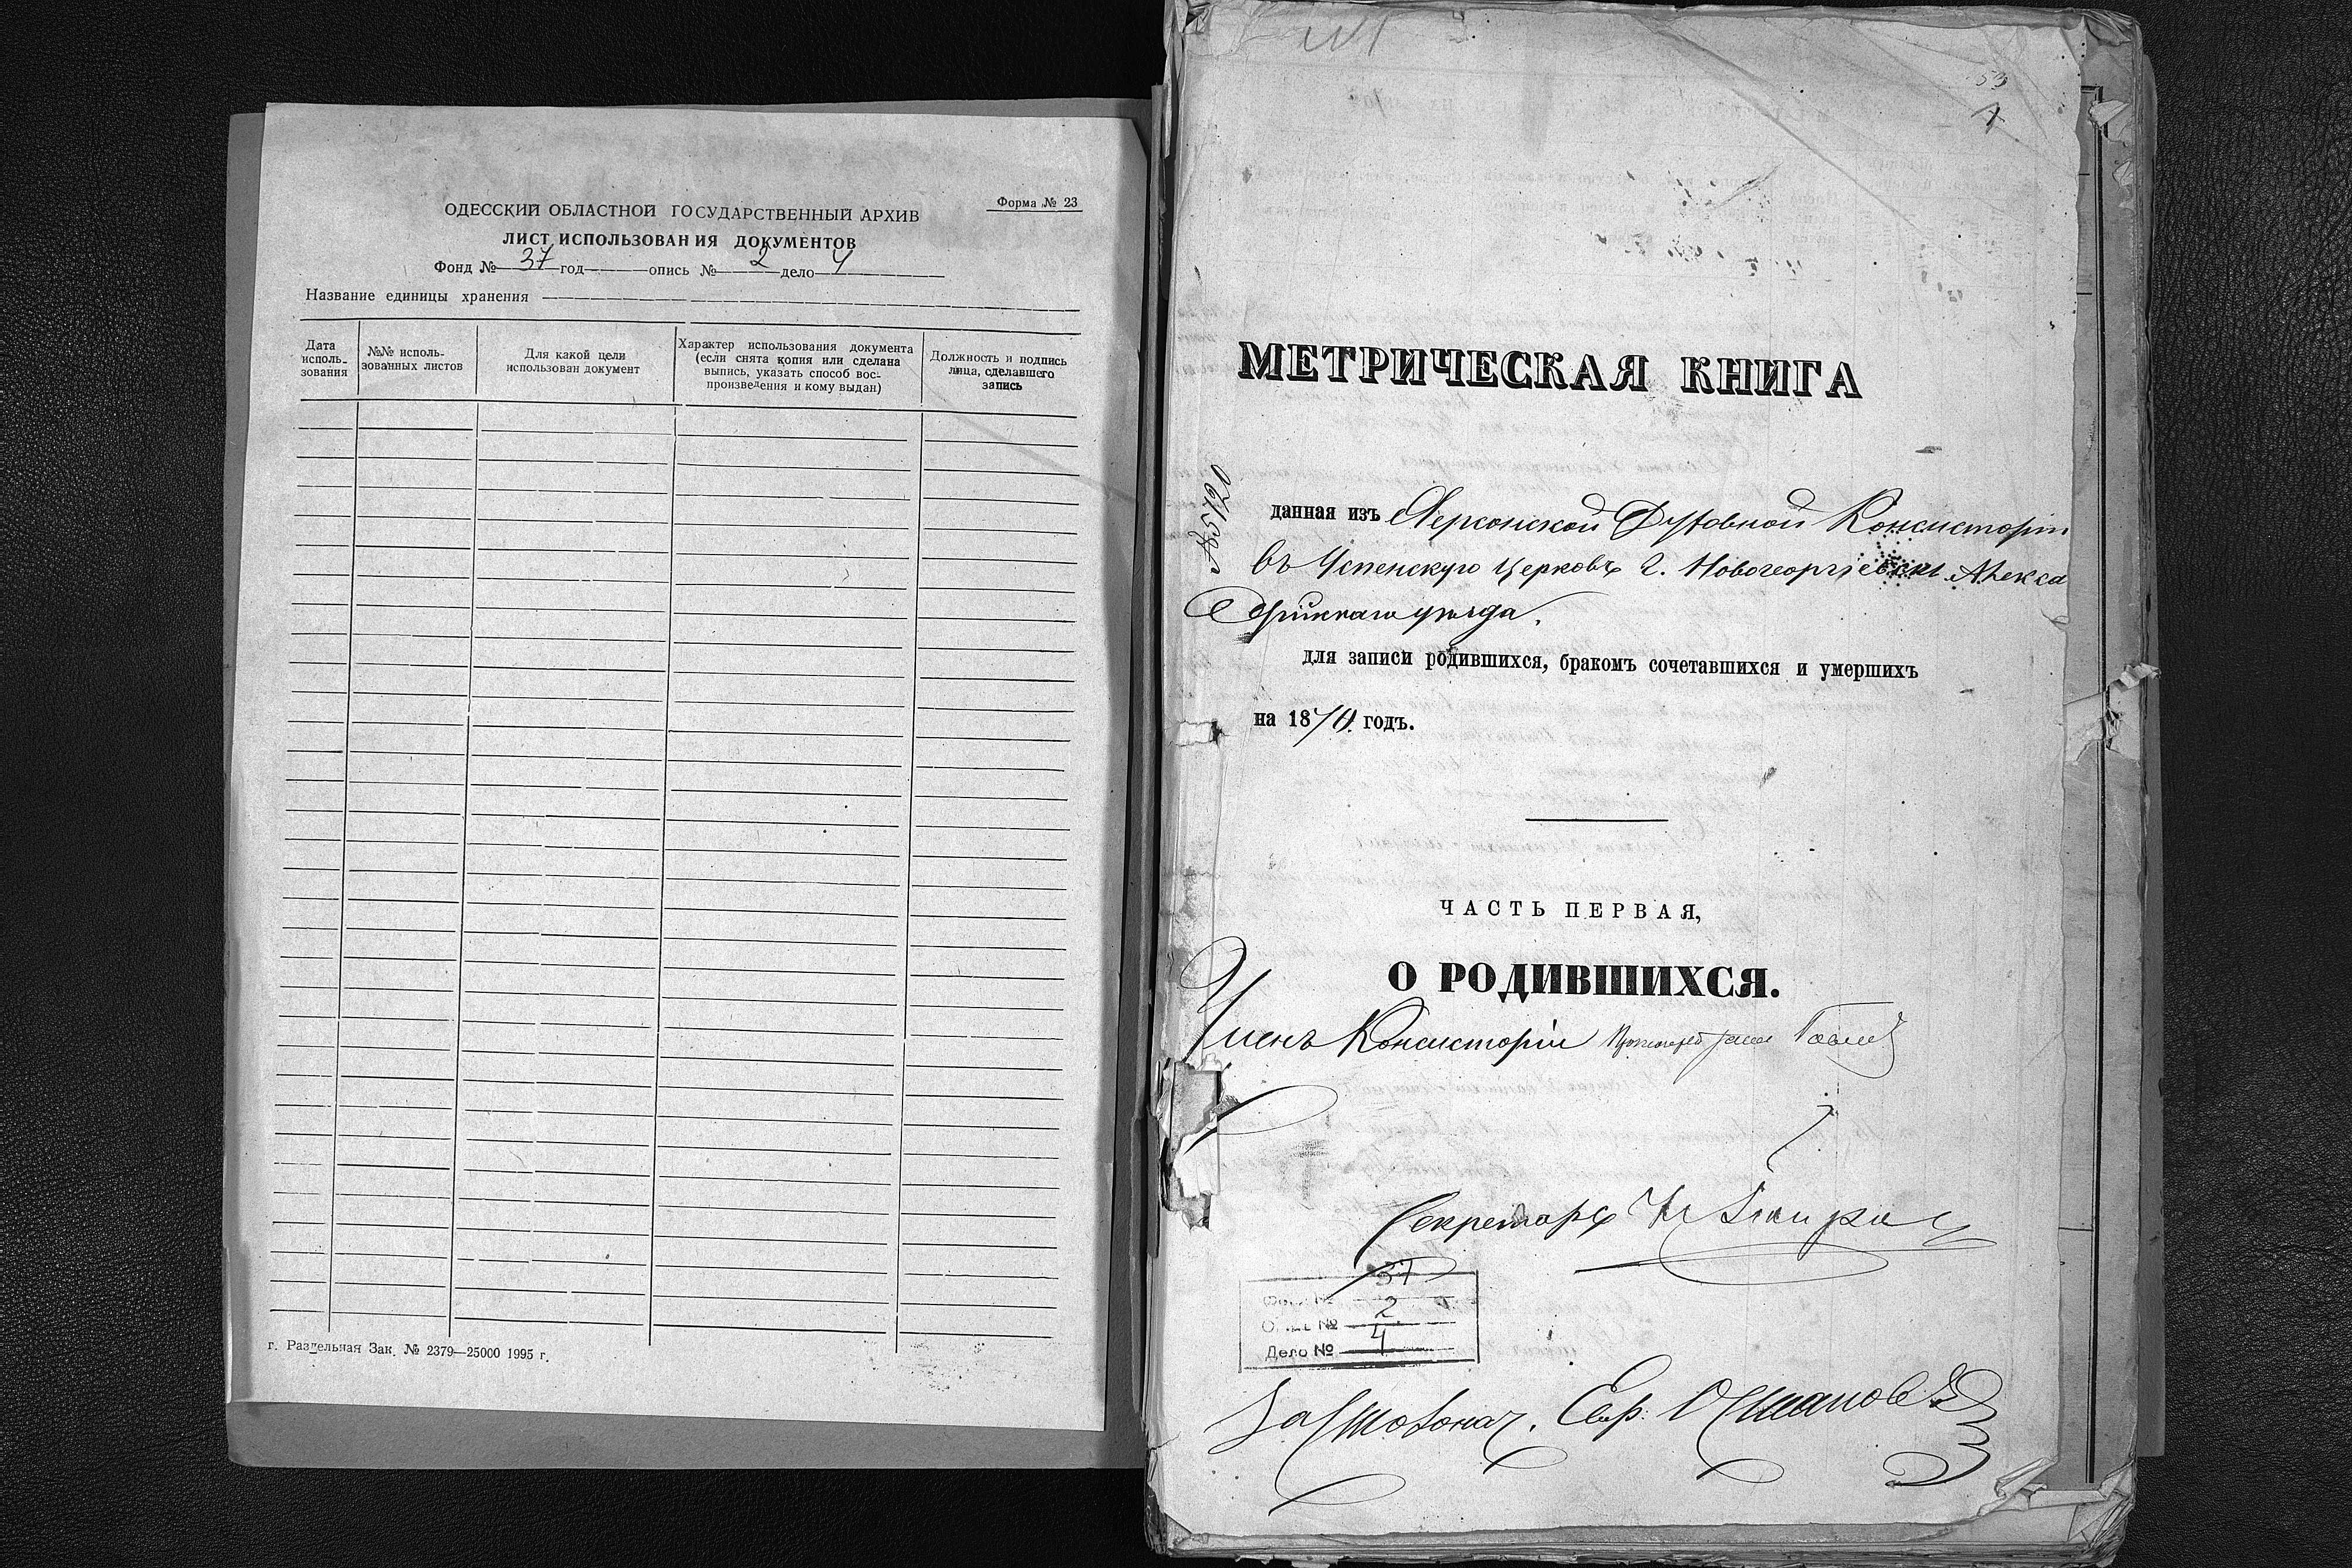 Форма № 23
ОДЕССКИЙ ОБЛАСТНОЙ ГОСУДАРСТВЕННЫЙ АРХИВ
ЛИСТ ИСПОЛЬЗОВАНИЯ ДОКУМЕНТОВ
Фонд № 37 год опись № 2 дело 4
Название единицы хранения
Дата исполь-
зования
№№ исполь-
зованных листов
Для какой цели
использован документ
Характер использования документа
(если снята копия или сделана
выпись, указать способ вос-
произведения и кому выдан)
Должность и подпись
лица, сделавшего
запись
г. Раздельная Зак. № 2379—25000 1995 г.
53
1
МЕТРИЧЕСКАЯ КНИГА
№ 5720
данная изъ Херсонской Духовной Консисторіи
въ Успенскую церковь г. Новогеоргіевска Алекса
ндрійскаго уѣзда.
для записи родившихся, бракомъ сочетавшихся и умершихъ
на 18 годъ.
ЧАСТЬ ПЕРВАЯ,
О РОДИВШИХСЯ.
Членъ Консисторіи
Секретарь
37
Фонд №
Опись № 2
Дело № 4
За Столонач.